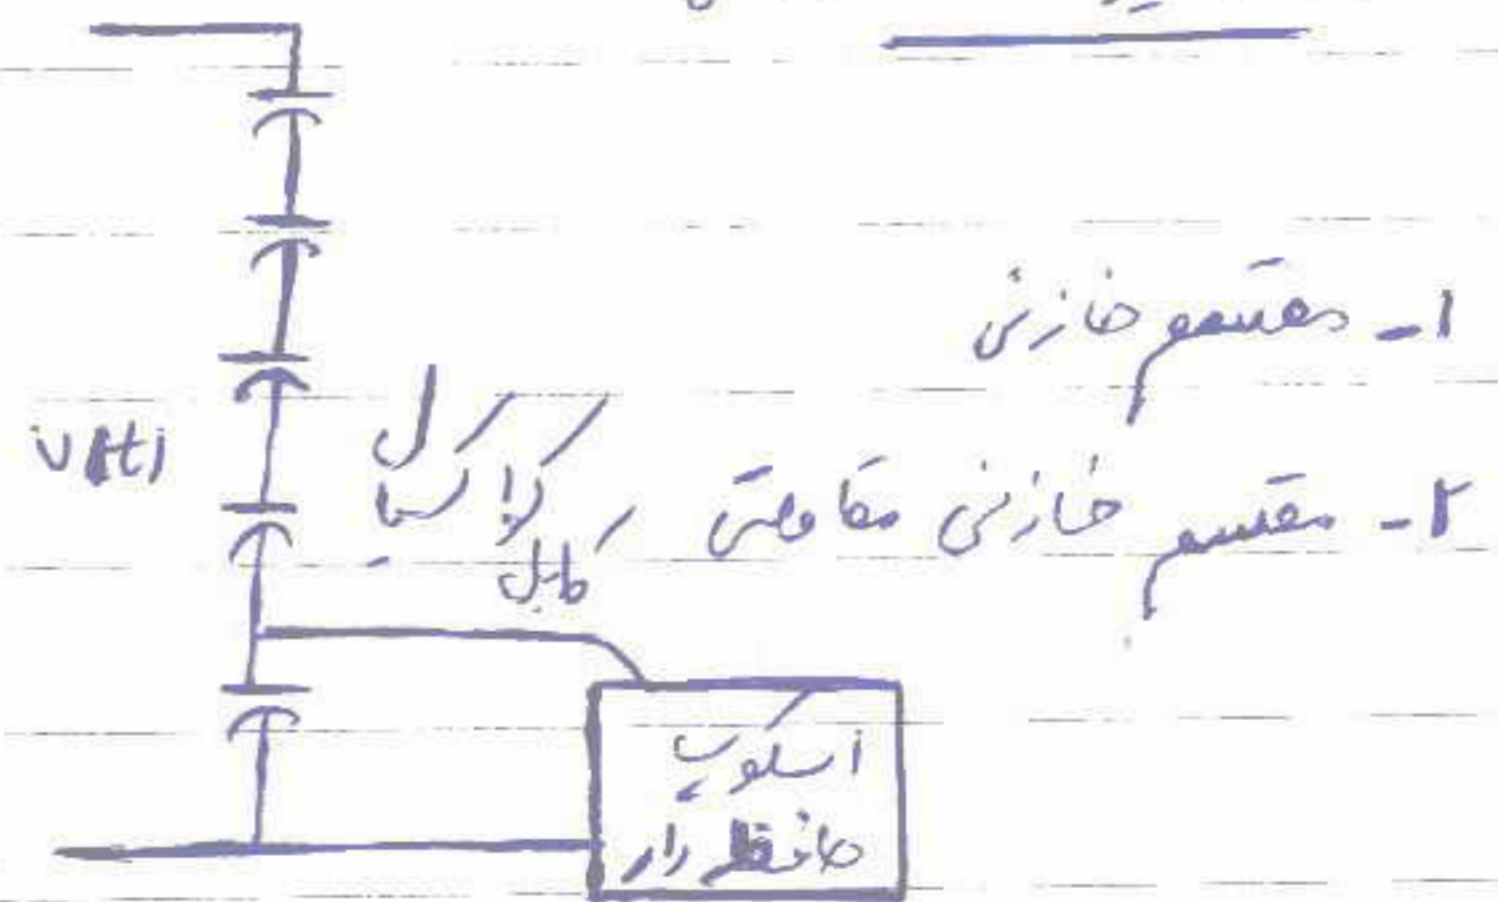 ۱- مقسم خازنی
۲- مقسم خازنی مقاومتی
v(t)
کابل
کواکسیال
اسکوپ
حافظه دار